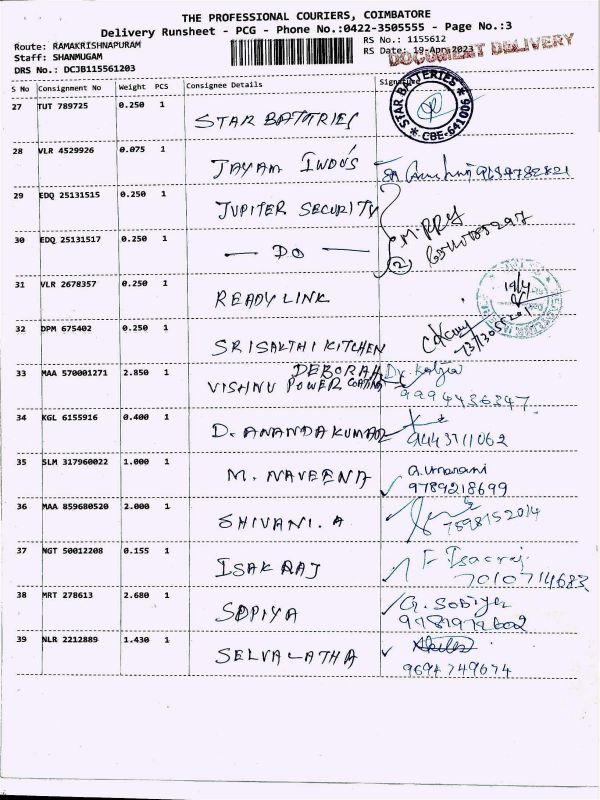 THE PROFESSIONAL COURIERS, COIMBATORE
Delivery Runsheet - PCG - Phone No.:0422-3505555 - Page No.:3
Route: RAMAKRISHNAPURAM
RS No.: 1155612
Staff: SHANMUGAM
RS Date: 19-Apr-2023
DOCUMENT DELIVERY
DRS No.: DCJB115561203
S No Consignment No Weight PCS Consignee Details Signature
27 TUT 789725 0.250 1 STAR BATTRIES
STAR BATTERIES CBE-641006
28 VLR 4529926 0.075 1 JAYAM INDO'S
29 EDQ 25131515 0.250 1 JUPITER SECURITY
30 EDQ 25131517 0.250 1 — DO —
31 VLR 2678357 0.250 1 READY LINK
19/4
32 DPM 675402 0.250 1 SRISAKTHI KITCHEN
33 MAA 570001271 2.850 1 DEBORAH
VISHNU POWER COATING
9994436347
34 KGL 6155916 0.400 1 D. ANANDAKUMAR
9443711062
35 SLM 317960022 1.000 1 M. NAVEENA
a.umarani
9789218699
36 MAA 859680520 2.000 1 SHIVANI. A
7598152014
37 NGT 50012208 0.155 1 ISAK RAJ
F Isacraj
7010714683
38 MRT 278613 2.680 1 SOPIYA
G. Sobiya
39 NLR 2212889 1.430 1 SELVALATHA
9694749674